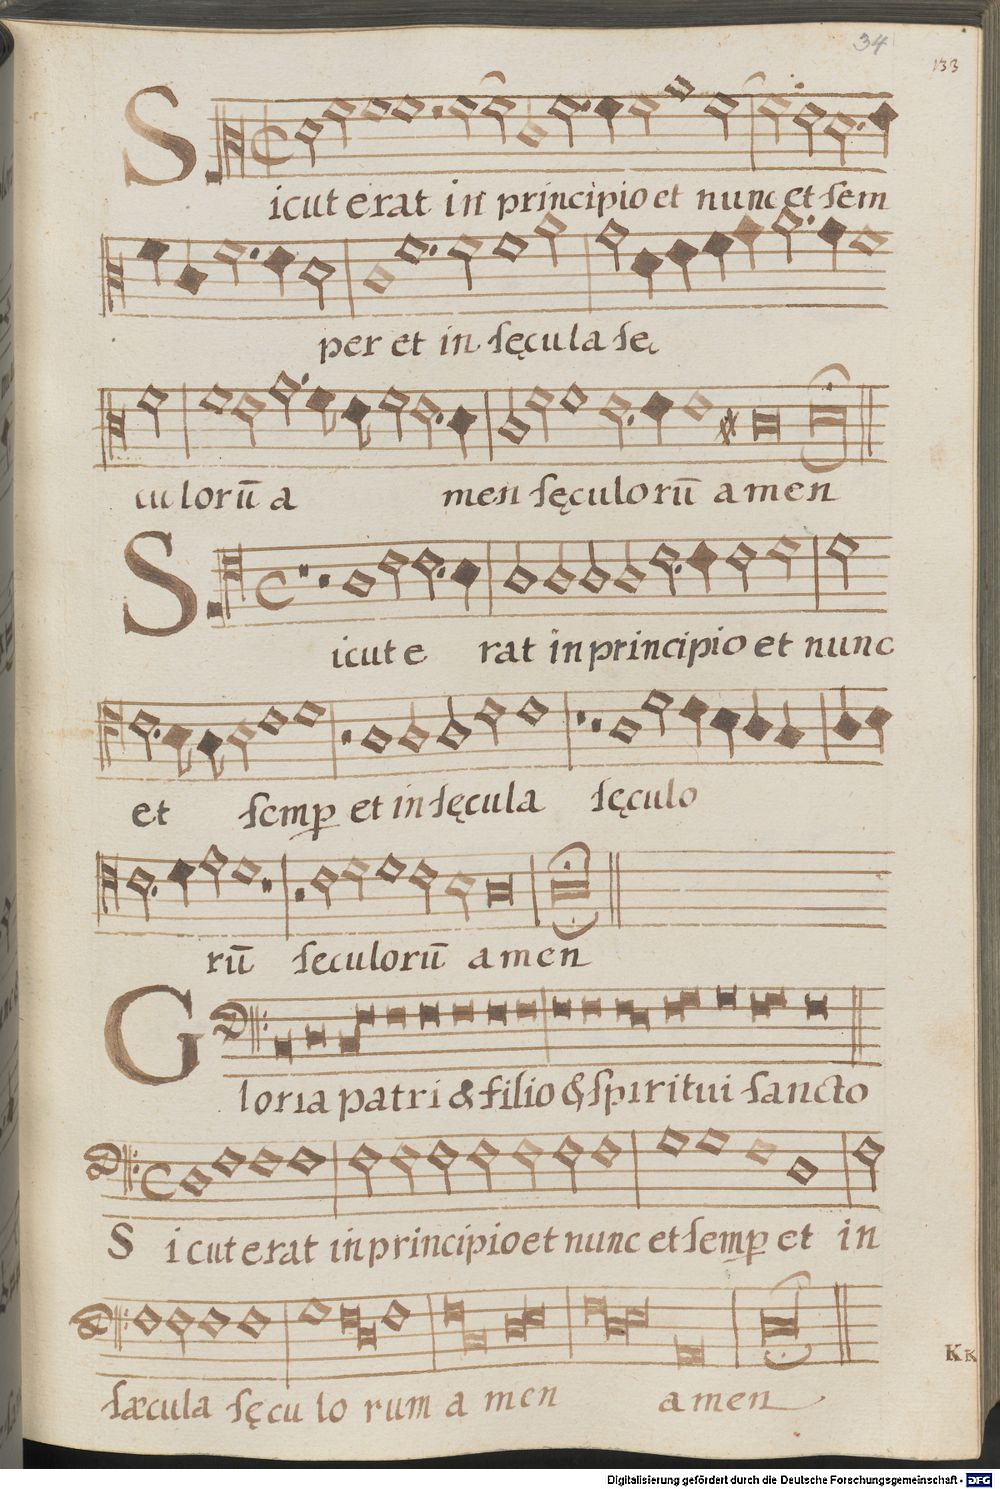 34
133
Sicut erat in principio et nunc et sem
per et in sęcula se
culorū a men sęculorū amen
Sicut e rat in principio et nunc
et semꝑ et in sęcula sęculo
rū seculorū amen
Gloria patri & filio & spiritui sancto
Sicut erat in principio et nunc et semꝑ et in
sæcula sęcu lo rum a men amen
Kk
Digitalisierung gefördert durch die Deutsche Forschungsgemeinschaft - DFG